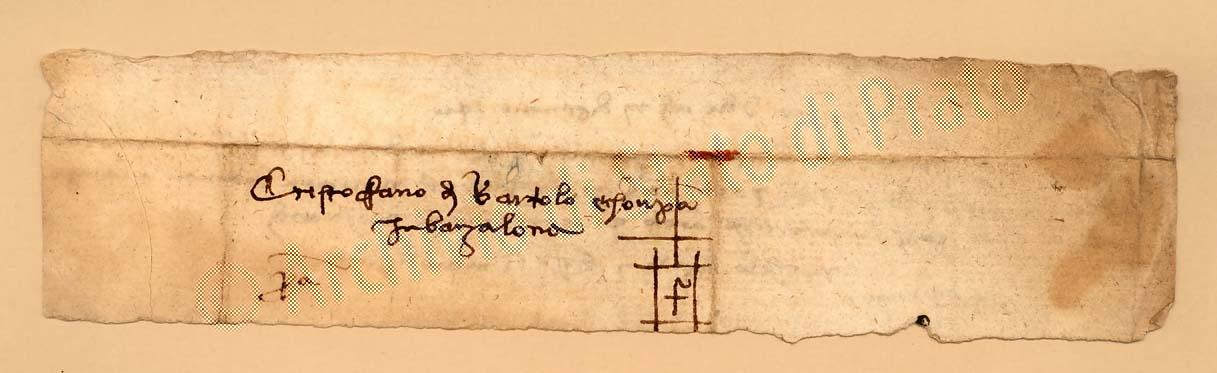 Cristofano di Bartolo e chonpa
In barzalona
pa
© Archivio di Stato di Prato